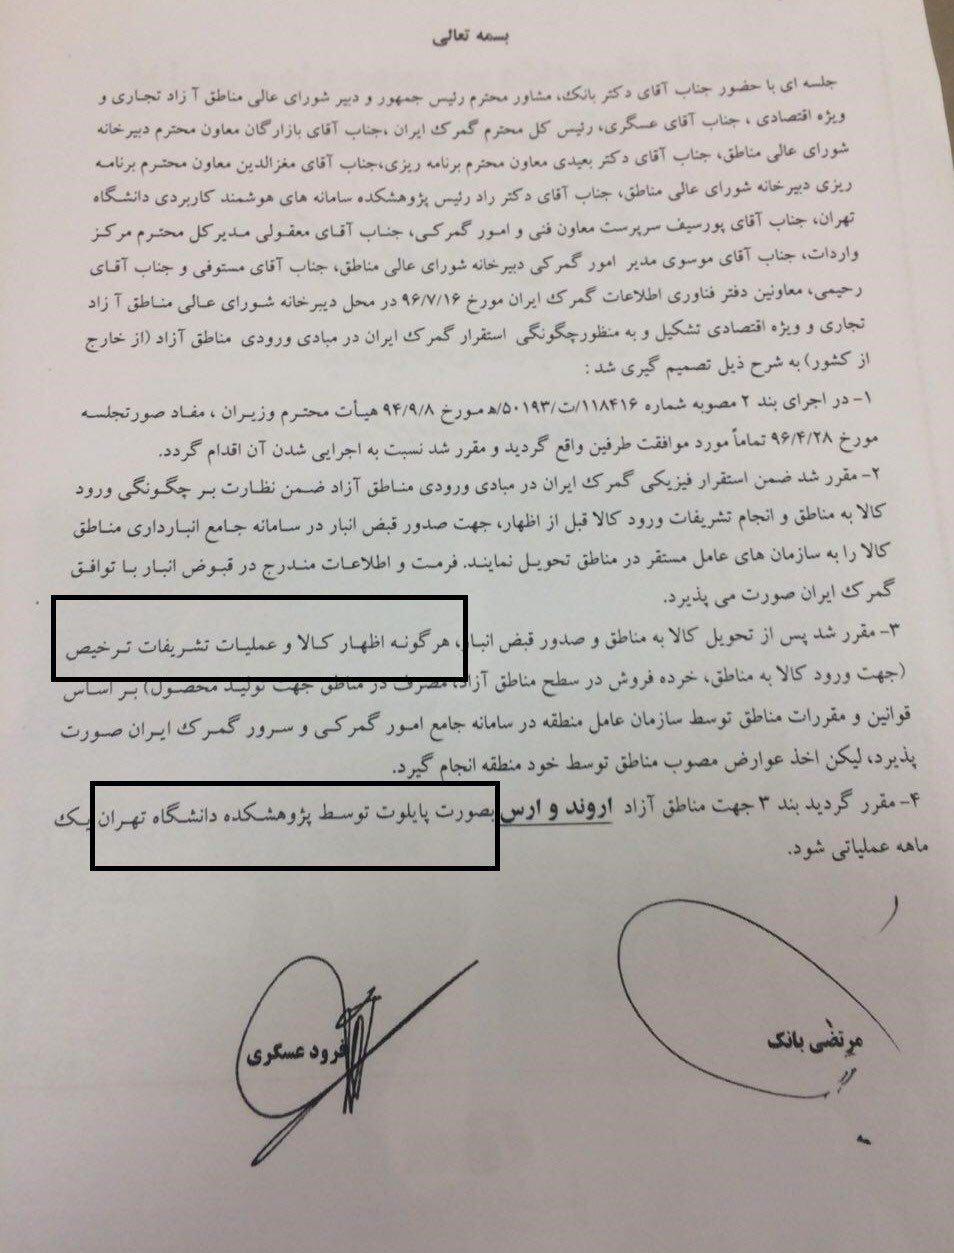 بسمه تعالی
جلسه ای با حضور جناب آقای دکتر بانک، مشاور محترم رئیس جمهور و دبیر شورای عالی مناطق آ زاد تجاری و
ویژه اقتصادی ، جناب آقای عسگری، رئیس کل محترم گمرک ایران ،جناب آقای بازارگان معاون محترم دبیرخانه
شورای عالی مناطق، جناب آقای دکتر بعیدی معاون محترم برنامه ریزی،جناب آقای مغزالدین معاون محترم برنامه
ریزی دبیرخانه شورای عالی مناطق، جناب آقای دکتر راد رئیس پژوهشکده سامانه های هوشمند کاربردی دانشگاه
تهران، جناب آقای پورسیف سرپرست معاون فنی و امور گمرکی، جناب آقای معقولی مدیرکل محترم مرکز
واردات، جناب آقای موسوی مدیر امور گمرکی دبیرخانه شورای عالی مناطق، جناب آقای مستوفی و جناب آقای
رحیمی، معاونین دفتر فناوری اطلاعات گمرک ایران مورخ ۹۶/۷/۱۶ در محل دیبرخانه شورای عالی مناطق آ زاد
تجاری و ویژه اقتصادی تشکیل و به منظورچگونگی استقرار گمرک ایران در مبادی ورودی مناطق آزاد (از خارج
از کشور) به شرح ذیل تصمیم گیری شد :
۱- در اجرای بند ۲ مصوبه شماره ۱۱۸۴۱۶/ت/۵۰۱۹۳/ه مورخ ۹۴/۹/۸ هیأت محترم وزیران ، مفاد صورتجلسه
مورخ ۹۶/۴/۲۸ تماماً مورد موافقت طرفین واقع گردید و مقرر شد نسبت به اجرایی شدن آن اقدام گردد.
۲- مقرر شد ضمن استقرار فیزیکی گمرک ایران در مبادی ورودی مناطق آزاد ضمن نظارت بر چگونگی ورود
کالا به مناطق و انجام تشریفات ورود کالا قبل از اظهار، جهت صدور قبض انبار در سامانه جامع انبارداری مناطق
کالا را به سازمان های عامل مستقر در مناطق تحویل نمایند. فرمت و اطلاعات مندرج در قبوض انبار با توافق
گمرک ایران صورت می پذیرد.
۳- مقرر شد پس از تحویل کالا به مناطق و صدور قبض انبار، هرگونه اظهار کالا و عملیات تشریفات ترخیص
(جهت ورود کالا به مناطق، خرده فروش در سطح مناطق آزاد، مصرف در مناطق جهت تولید محصول) بر اساس
قوانین و مقررات مناطق توسط سازمان عامل منطقه در سامانه جامع امور گمرکی و سرور گمرک ایران صورت
پذیرد، لیکن اخذ عوارض مصوب مناطق توسط خود منطقه انجام گیرد.
۴- مقرر گردید بند ۳ جهت مناطق آزاد اروند و ارس بصورت پایلوت توسط پژوهشکده دانشگاه تهران یک
ماهه عملیاتی شود.
مرتضی بانک
فرود عسگری